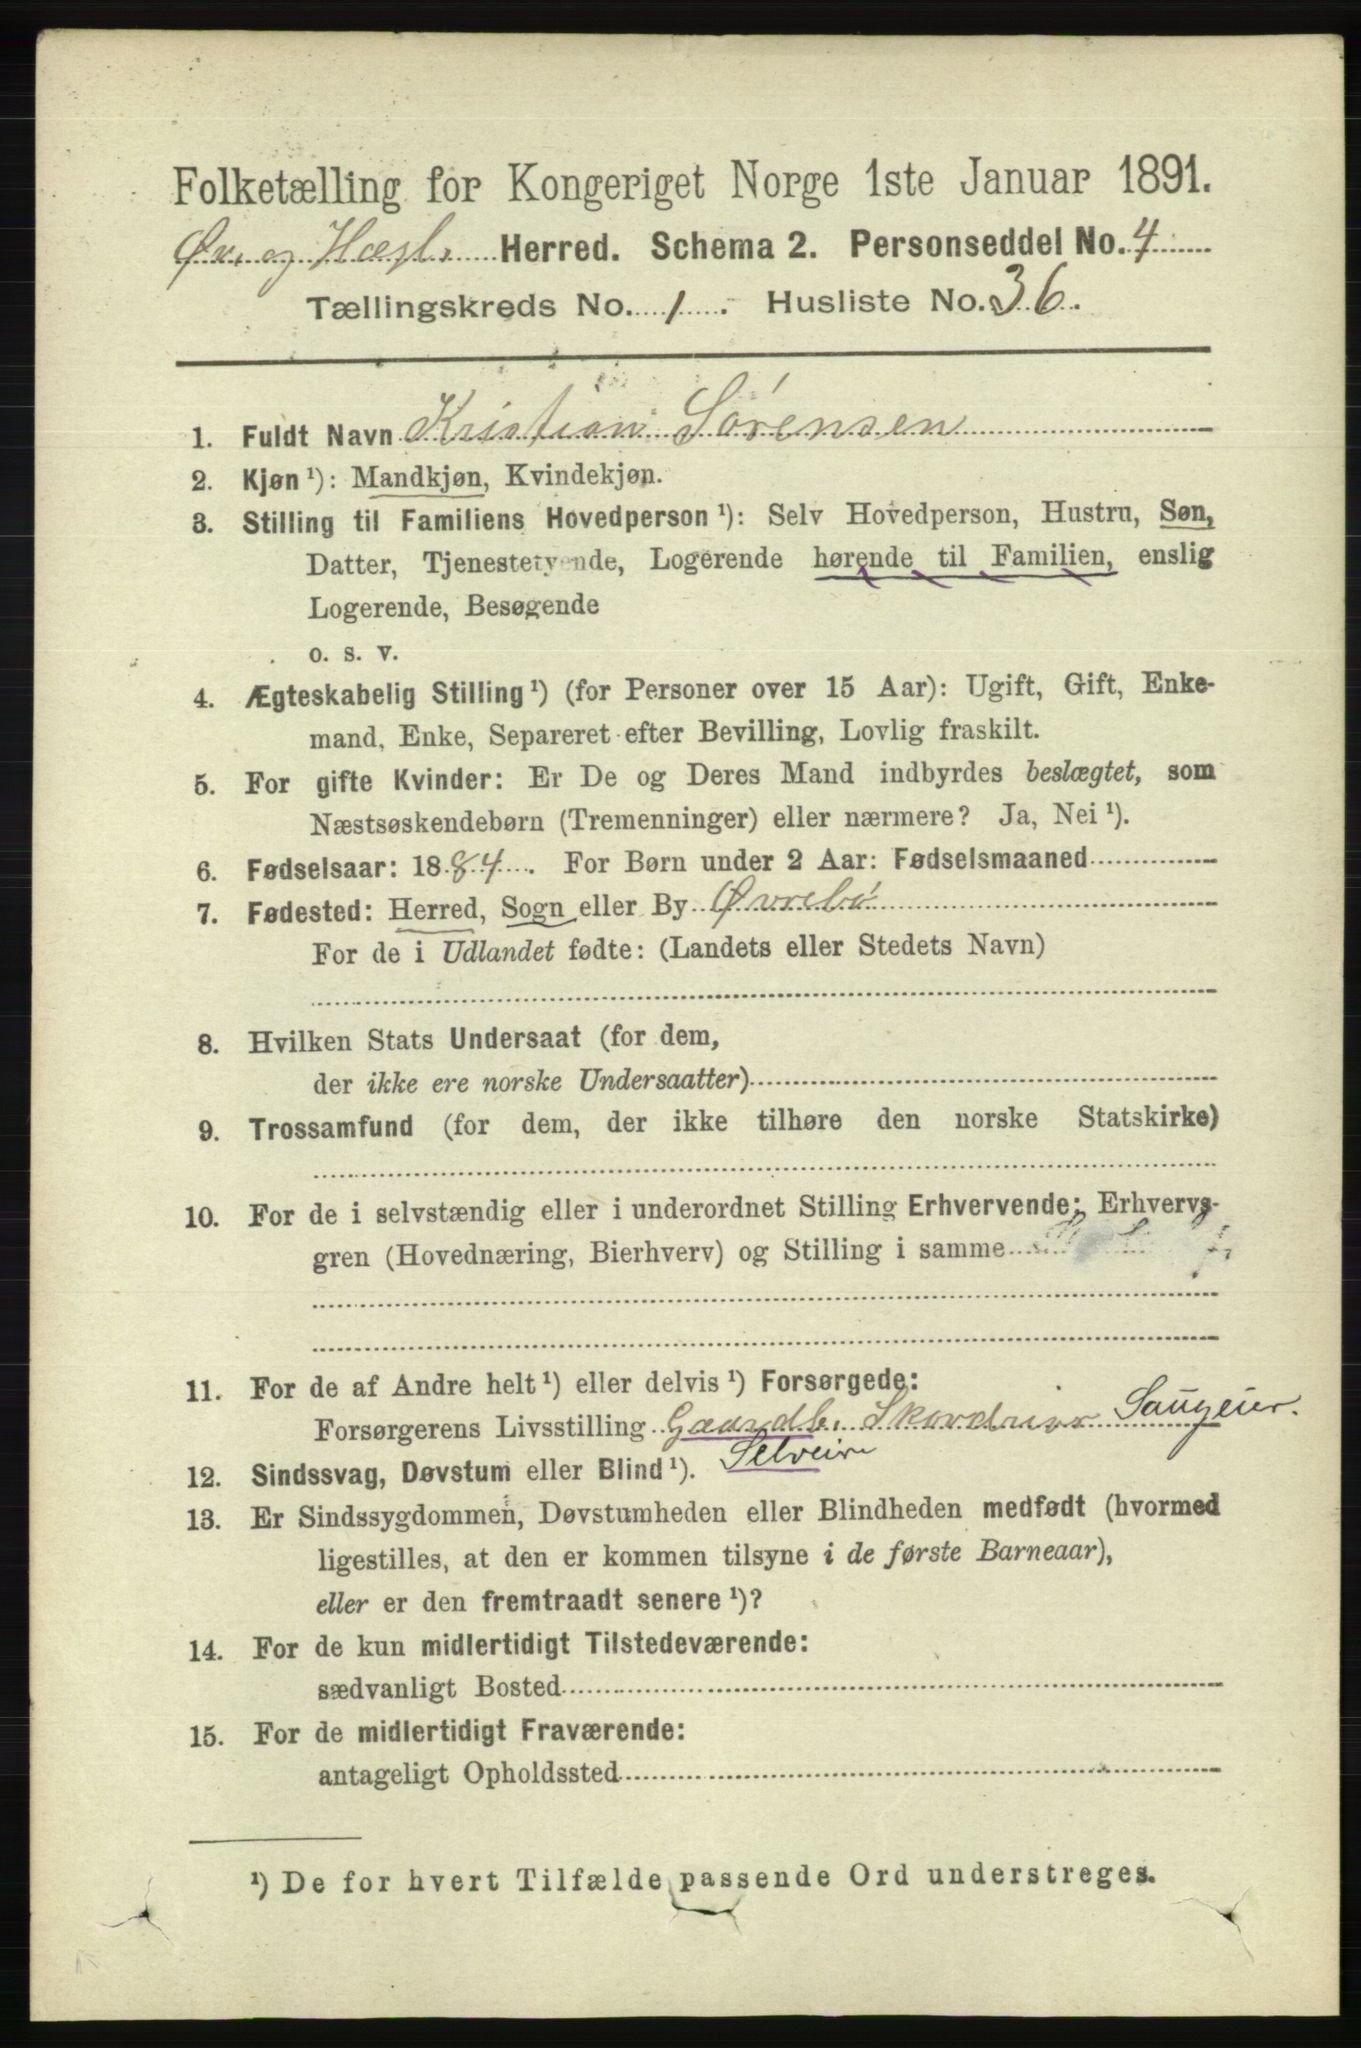 Folketælling for Kongeriget Norge 1ste Januar 1891.
Øv. og Hægl. Herred. Schema 2. Personseddel No. 4
Tællingskreds No. 1. Husliste No. 36.
1. Fuldt Navn Kristian Sórensen
2. Kjøn ¹): Mandkjøn, Kvindekjøn.
3. Stilling til Familiens Hovedperson ¹): Selv Hovedperson, Hustru, Søn,
Datter, Tjenestetyende, Logerende hørende til Familien, enslig
Logerende, Besøgende
o. s. v.
4. Ægteskabelig Stilling ¹) (for Personer over 15 Aar): Ugift, Gift, Enke-
mand, Enke, Separeret efter Bevilling, Lovlig fraskilt.
5. For gifte Kvinder: Er De og Deres Mand indbyrdes beslægtet, som
Næstsøskendebørn (Tremenninger) eller nærmere? Ja, Nei ¹).
6. Fødselsaar: 1884. For Børn under 2 Aar: Fødselsmaaned
7. Fødested: Herred, Sogn eller By Øvrebó
For de i Udlandet fødte: (Landets eller Stedets Navn)
8. Hvilken Stats Undersaat (for dem,
der ikke ere norske Undersaatter)
9. Trossamfund (for dem, der ikke tilhøre den norske Statskirke)
10. For de i selvstændig eller i underordnet Stilling Erhvervende: Erhvervs-
gren (Hovednæring, Bierhverv) og Stilling i samme
11. For de af Andre helt ¹) eller delvis ¹) Forsørgede:
Forsørgerens Livsstilling Gaardb. Skovdriver Saugeier.
Selveier
12. Sindssvag, Døvstum eller Blind ¹).
13. Er Sindssygdommen, Døvstumheden eller Blindheden medfødt (hvormed
ligestilles, at den er kommen tilsyne i de første Barneaar),
eller er den fremtraadt senere ¹)?
14. For de kun midlertidigt Tilstedeværende:
sædvanligt Bosted
15. For de midlertidigt Fraværende:
antageligt Opholdssted
¹) De for hvert Tilfælde passende Ord understreges.